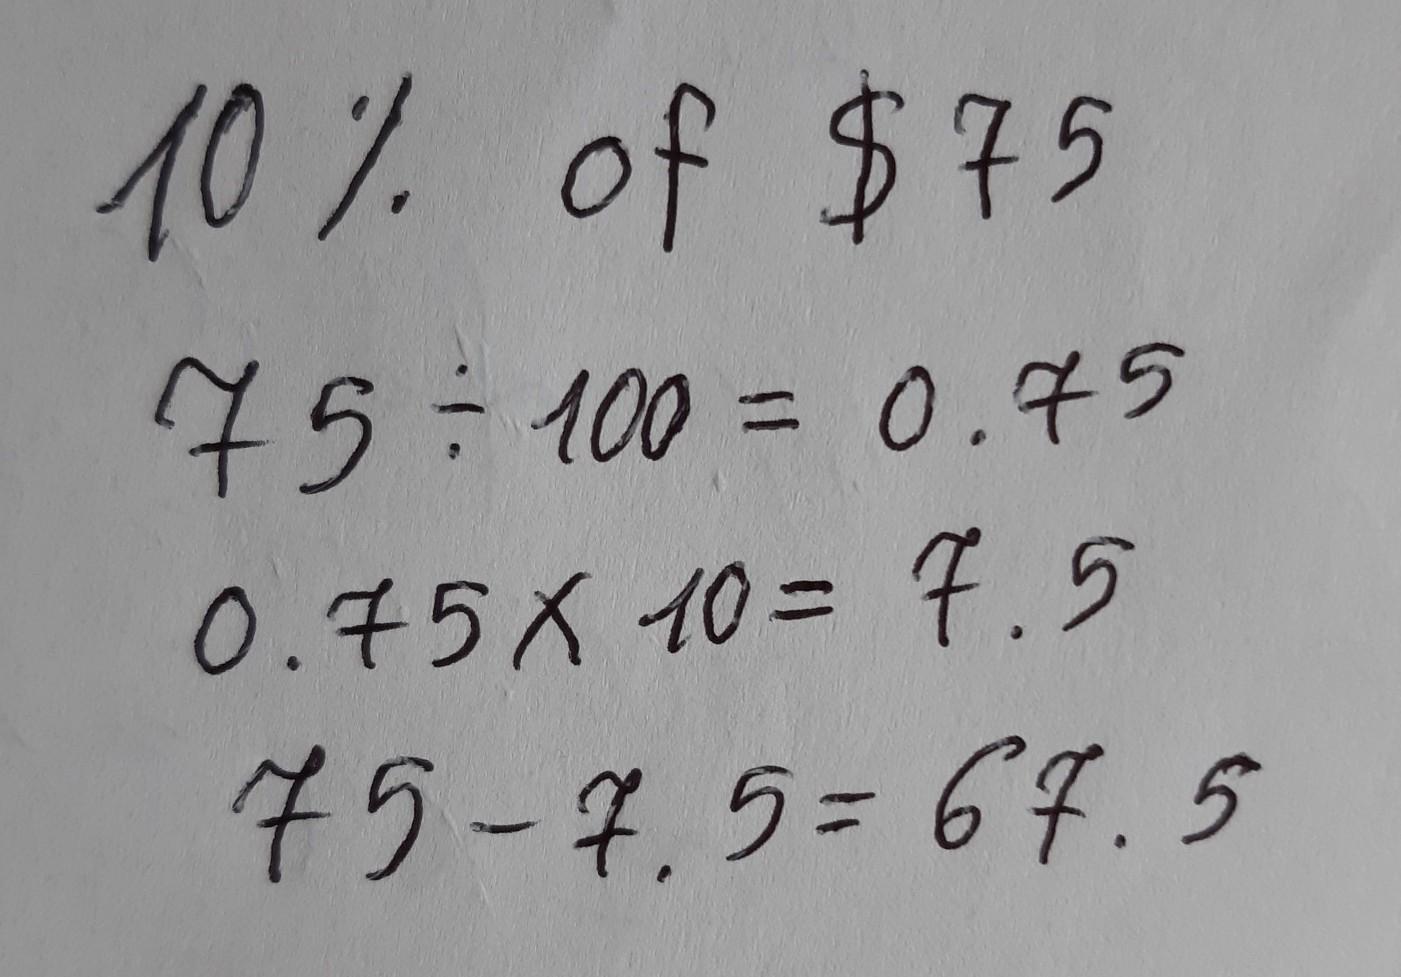 10% of $75
75 ÷ 100 = 0.75
0.75 x 10 = 7.5
75 - 7.5 = 67.5